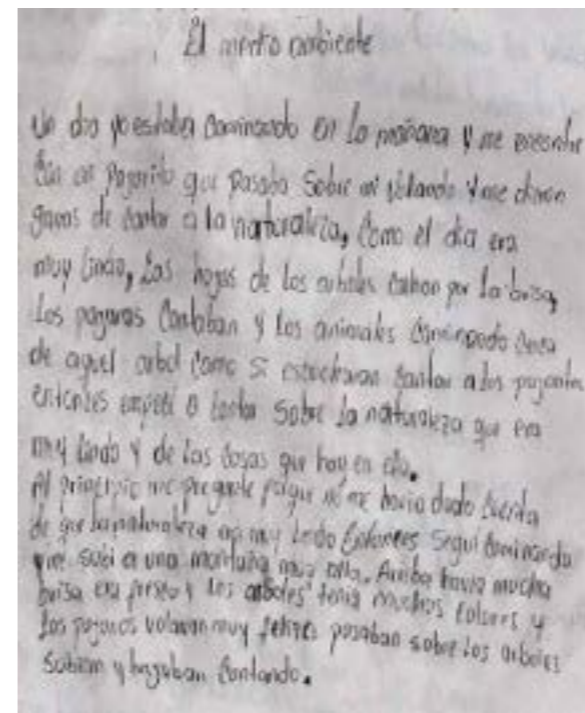 El medio ambiente
Un dia yo estaba caminando en la mañana y me encontre
con un pajarito que pasaba sobre mi volando y me dieron
ganas de cantar a la naturaleza, como el dia era
muy lindo, Las hojas de los arboles caian por la brisa,
Los pajaros cantaban y los animales caminando cerca
de aquel arbol como si escucharan cantar a los pajaritos
entonces empecé a cantar sobre la naturaleza que era
muy lindo y de las cosas que hay en ella.
Al principio me pregunte porque no me havia dado cuenta
de que la naturaleza es muy lindo Entonces Segui caminando
subi a una montaña muy alta. Arriba havia mucha
brisa era fresco y los arboles tenia muchos colores y
Los pajaros volavan muy felices pasaban sobre los arboles
subian y bajaban cantando.